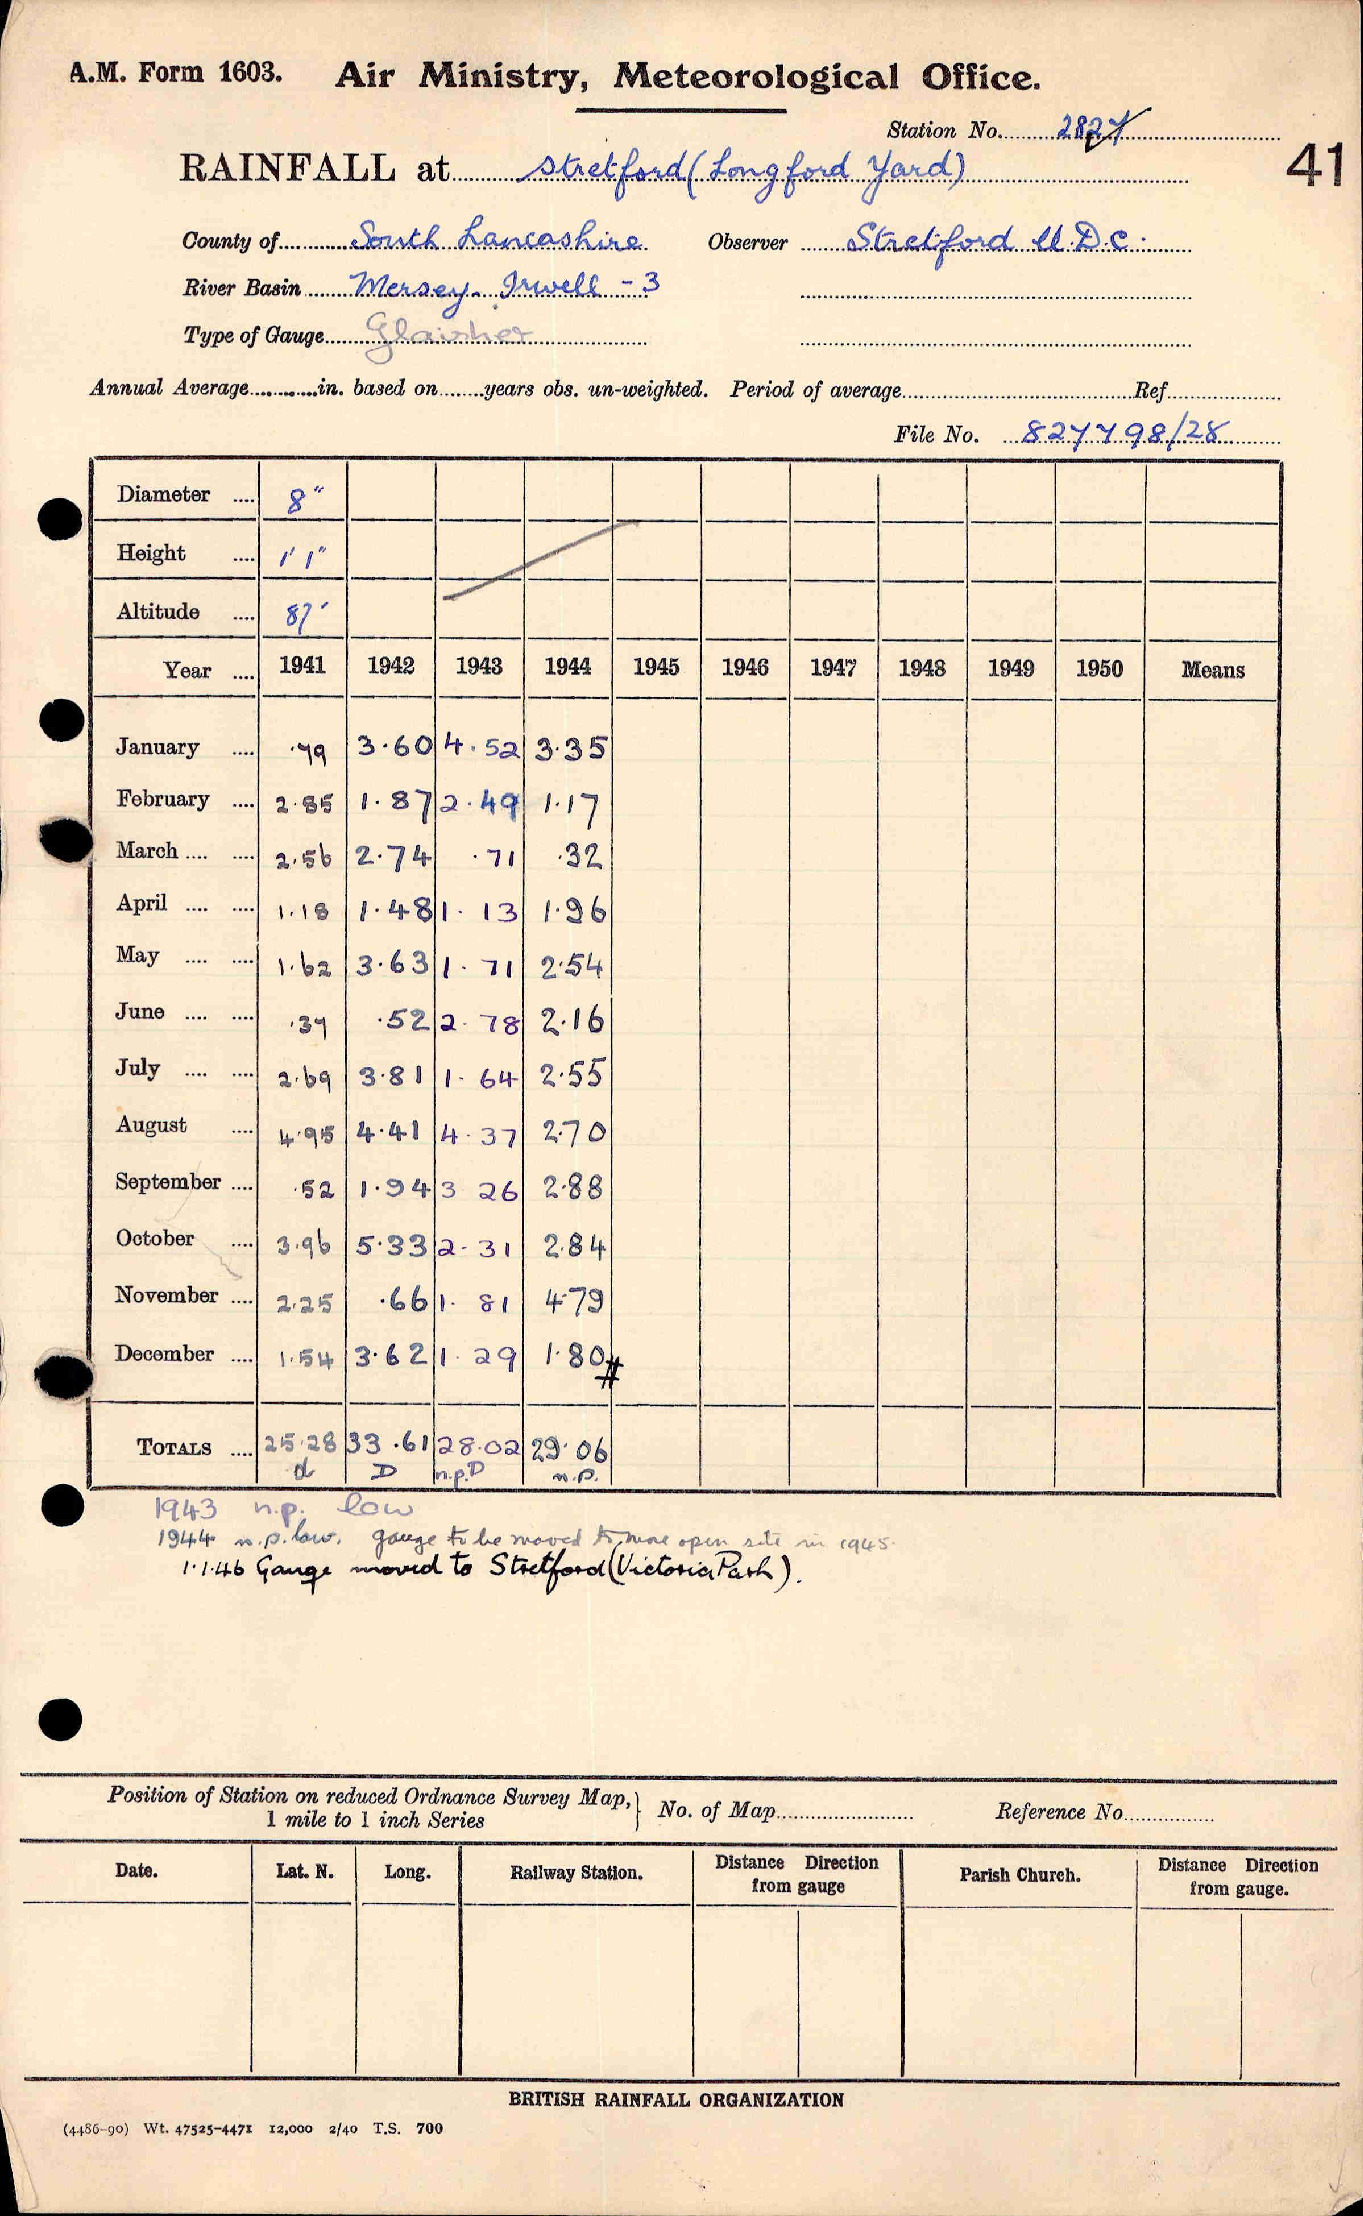 A.M. Form 1603. Air Ministry, Meteorological Office.
Station No. 2827
RAINFALL at Stretford (Longford Yard) 41
County of South Lancashire Observer Stretford U.D.C.
River Basin Mersey - Irwell - 3
Type of Gauge Glaisher
Annual Average............in. based on........years obs. un-weighted. Period of average........Ref........
File No. 827798/28
Diameter .... 8"
Height .... 1' 1"
Altitude .... 87'
Year .... 1941 1942 1943 1944 1945 1946 1947 1948 1949 1950 Means
January .... .79 3.60 4.52 3.35
February .... 2.85 1.87 2.49 1.17
March .... .... 2.56 2.74 .71 .32
April .... .... 1.18 1.48 1.13 1.96
May .... .... 1.62 3.63 1.71 2.54
June .... .... .37 .52 2.78 2.16
July .... .... 2.69 3.81 1.64 2.55
August .... 4.95 4.41 4.37 2.70
September .... .52 1.94 3 26 2.88
October .... 3.96 5.33 2.31 2.84
November .... 2.25 .66 1.81 4.79
December .... 1.54 3.62 1.29 1.80 #
TOTALS .... 25.28 33.61 28.02 29.06
d D n.p.D n.p.
1943 n.p. low
1944 n.p. low. gauge to be moved to more open site in 1945.
1.1.46 Gauge moved to Stretford (Victoria Park).
Position of Station on reduced Ordnance Survey Map,} No. of Map........ Reference No........
1 mile to 1 inch Series
Date. Lat. N. Long. Railway Station. Distance Direction from gauge Parish Church. Distance Direction from gauge.
BRITISH RAINFALL ORGANIZATION
(4486-90) Wt. 47525-4471 12,000 2/40 T.S. 700